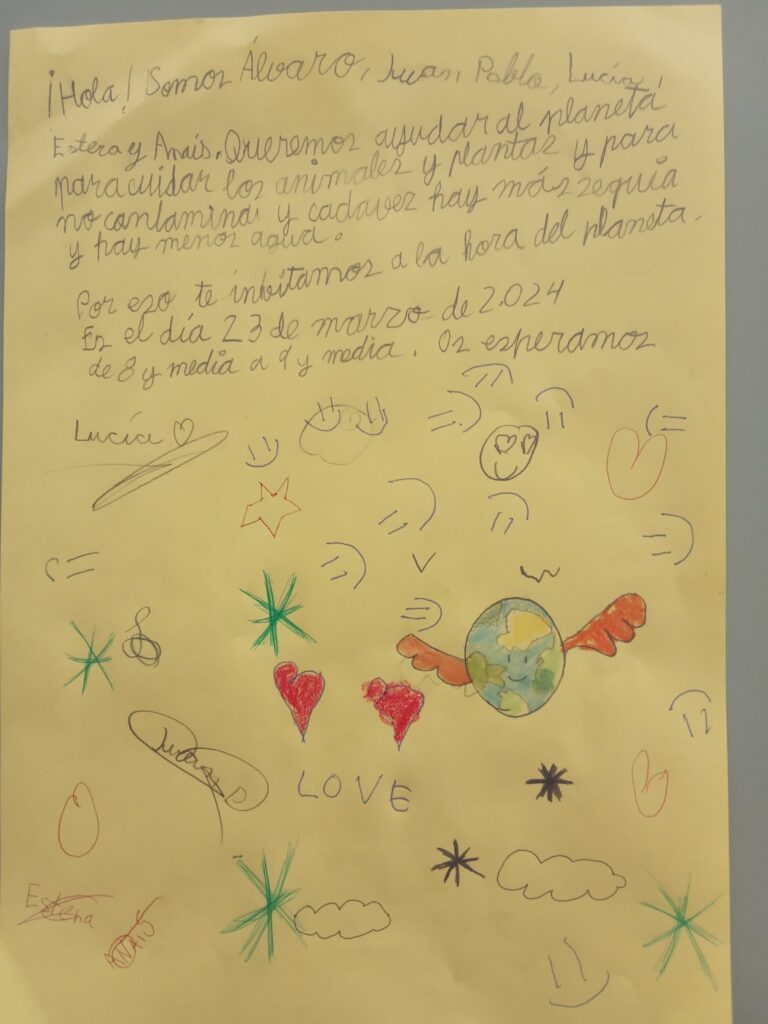 ¡Hola! Somos Álvaro, Juan, Pablo, Lucía,
Estera y Anaís. Queremos ayudar al planeta
para cuidar los animales y plantas y para
no contaminar y cadavez hay más zequia
y hay menos agua.
Por eso te inbitamos a la hora del planeta.
En el día 23 de marzo de 2.024
de 8 y media a 9 y media. Os esperamos
Lucía
LOVE
Estera
ANAIS